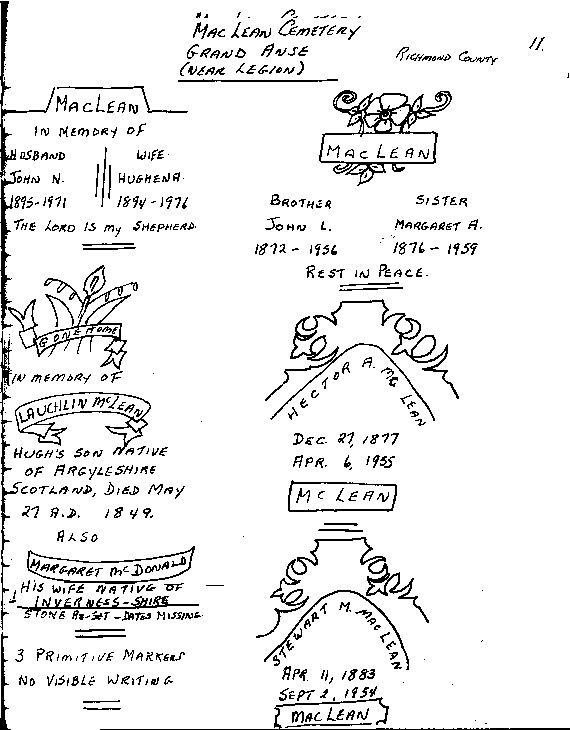 MacLean Cemetery
Grand Anse
(Near Legion)
Richmond County
11.
MacLean
In Memory of
Husband Wife
John N. Hughena.
1895-1971 1894-1976
The Lord is my Shepherd.
Gone Home
In memory of
Lauchlin McLean
Hugh's son native
of Argyleshire
Scotland, Died May
27 A.D. 1849.
Also
Margaret McDonald
His wife native of
Inverness-shire
Stone Re-set - Dates Missing.
3 Primitive Markers
No Visible Writing
MacLean
Brother Sister
John L. Margaret A.
1872 - 1956 1876 - 1959
Rest in Peace.
Hector A. McLean
Dec. 27, 1877
Apr. 6, 1955
McLean
Stewart M. MacLean
Apr. 11, 1883
Sept 2, 1954
MacLean